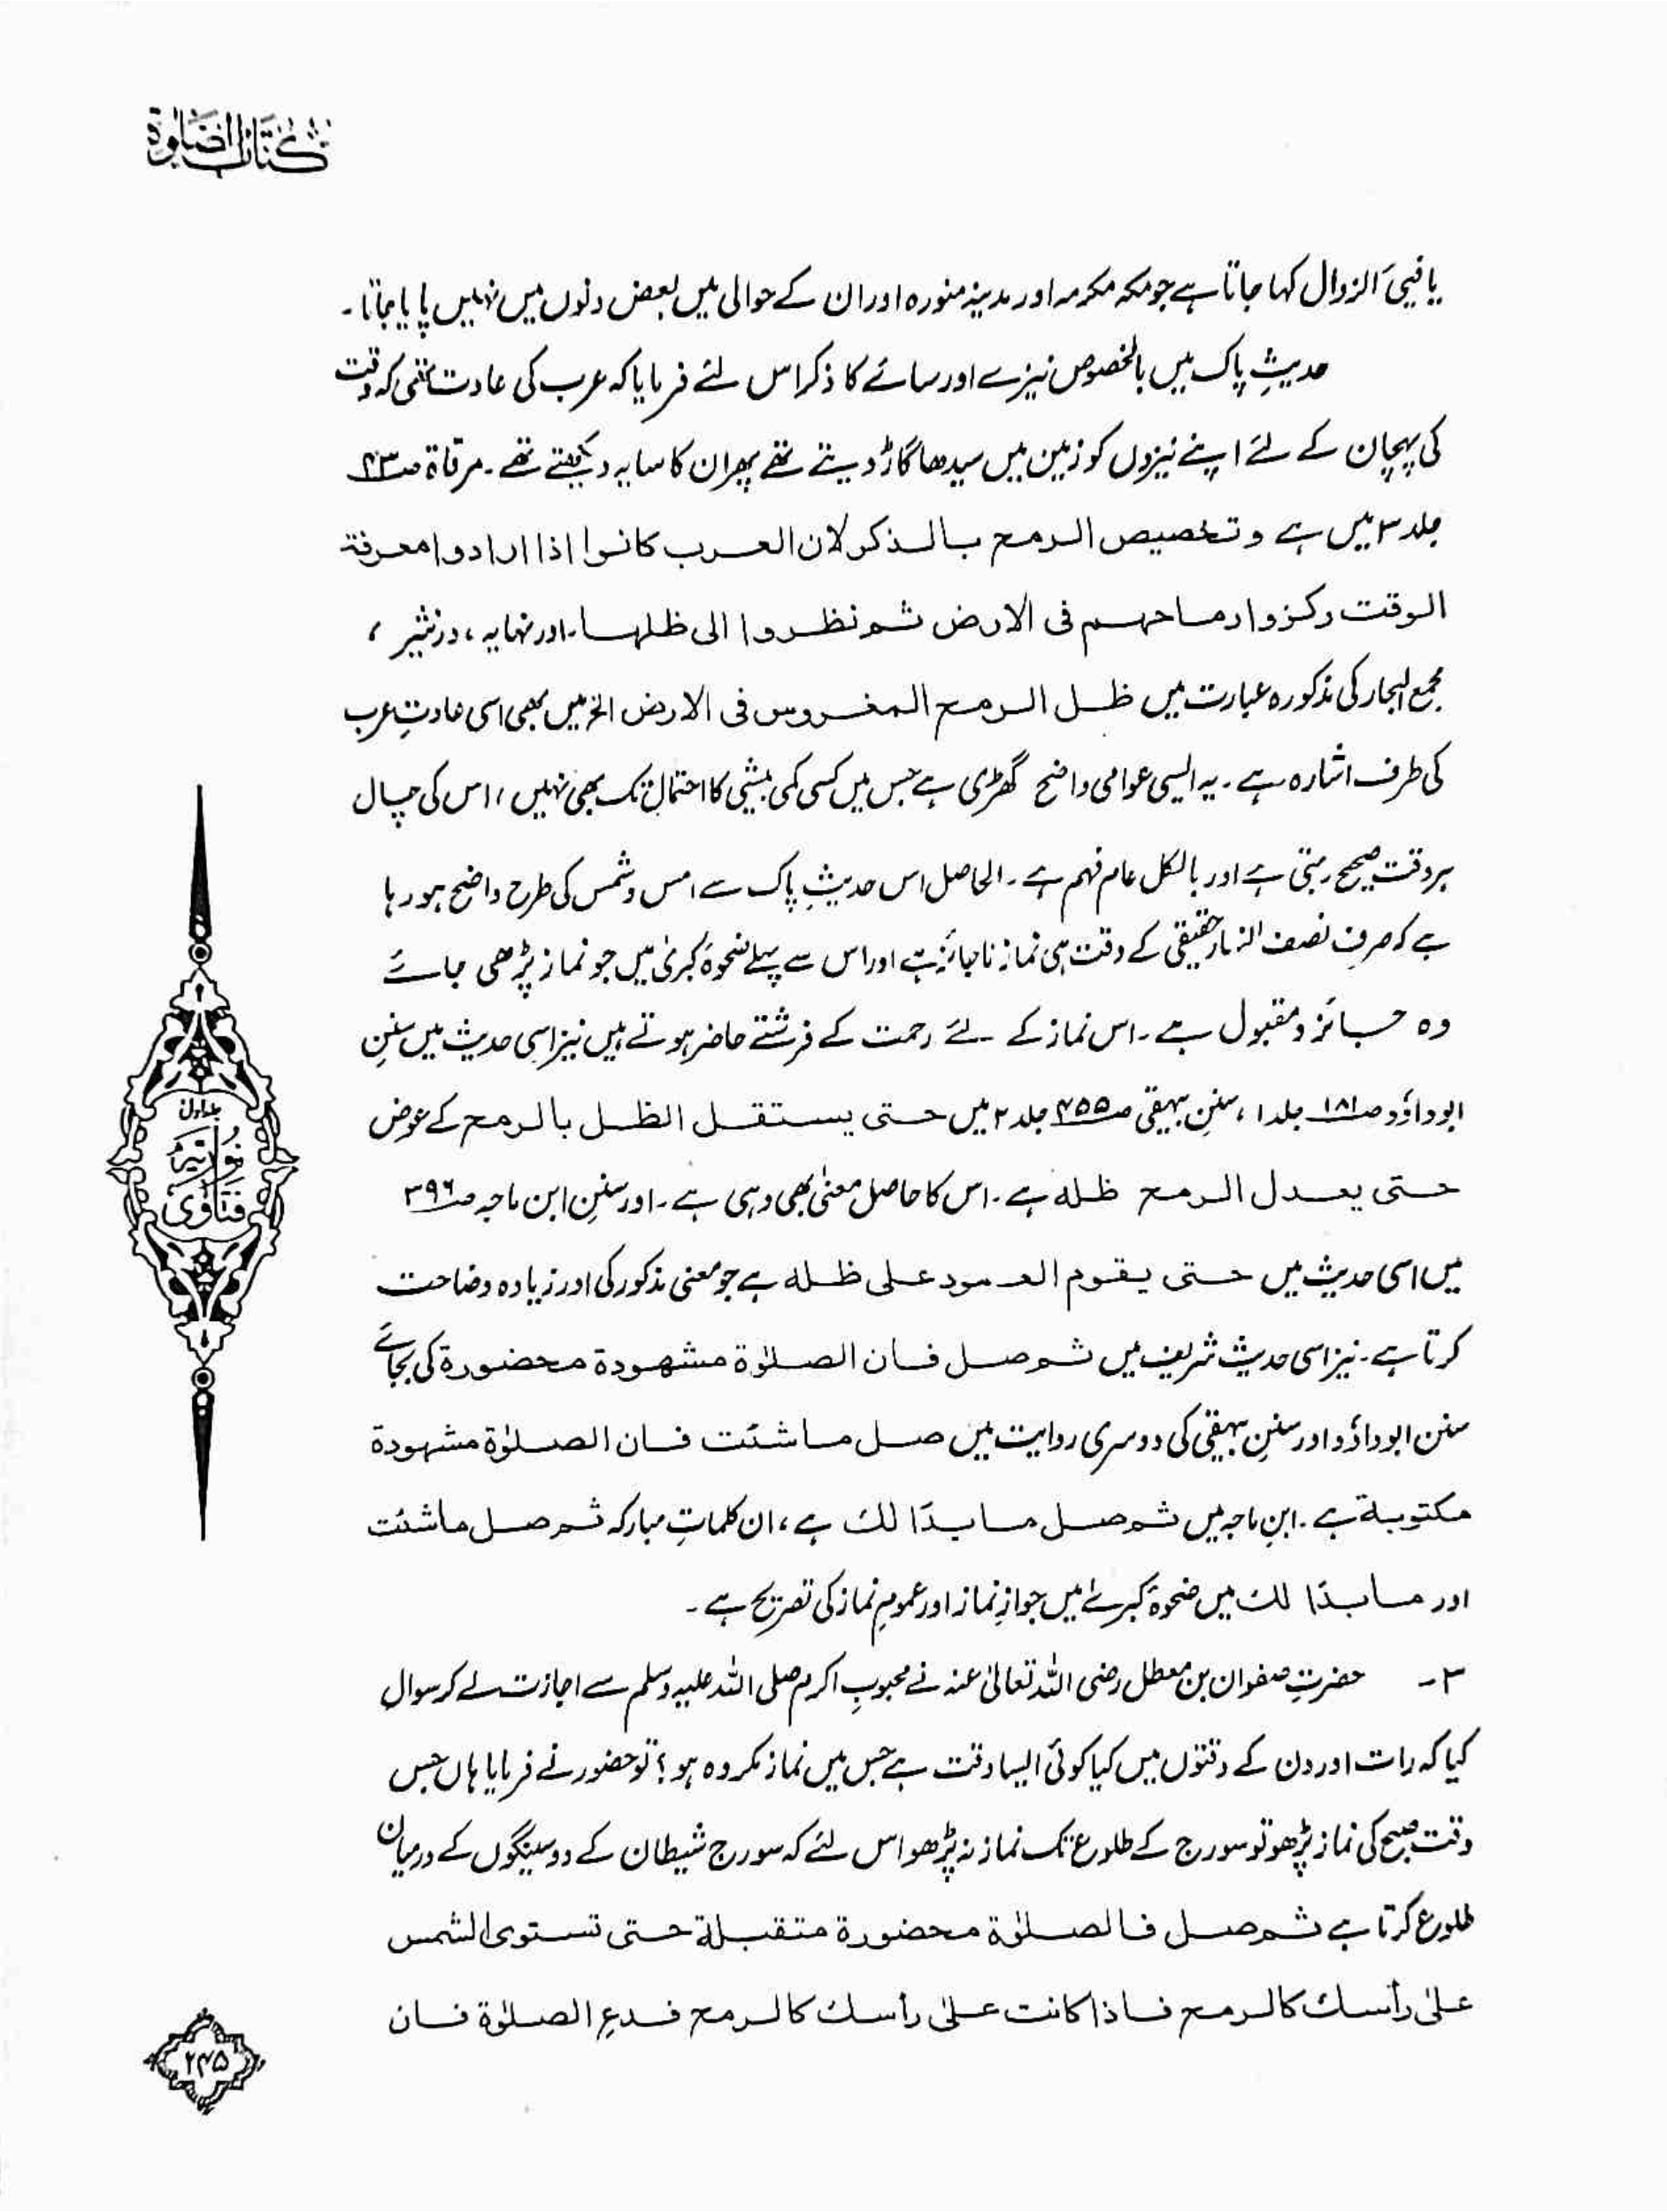 كتاب الصلوة
یا فیئ الزوال کہا جاتا ہے جو مکہ مکرمہ اور مدینہ منورہ اور ان کے حوالی میں بعض دنوں میں نہیں پایا جاتا۔
حدیثِ پاک میں بالخصوص نیزے اور سائے کا ذکر اس لئے فرمایا کہ عرب کی عادت تھی کہ وقت
کی پہچان کے لئے اپنے نیزوں کو زمین میں سیدھا گاڑ دیتے تھے پھر ان کا سایہ دیکھتے تھے۔ مرقاة صـ۴۳
جلد ۳ میں ہے و تخصیص الرمح بالذکر لان العرب کانوا اذا ارادوا معرفة
الوقت رکزوا رماحهم فی الارض ثم نظروا الی ظلها۔ اور نہایہ، درنثیر،
مجمع البحار کی مذکورہ عبارت میں ظل الرمح المغروس فی الارض الخ میں بھی اسی عادتِ عرب
کی طرف اشارہ ہے۔ یہ ایسی عوامی واضح گھڑی ہے جس میں کسی کمی بیشی کا احتمال تک بھی نہیں، اس کی چال
ہر وقت صحیح رہتی ہے اور بالکل عام فہم ہے۔ الحاصل اس حدیثِ پاک سے امس و شمس کی طرح واضح ہو رہا
ہے کہ صرف نصف النہار حقیقی کے وقت ہی نماز ناجائز ہے اور اس سے پہلے ضحوۂ کبریٰ میں جو نماز پڑھی جائے
وہ جائز و مقبول ہے۔ اس نماز کے لئے رحمت کے فرشتے حاضر ہوتے ہیں نیز اسی حدیث میں سننِ
ابو داؤد صـ۱۸۱ جلد ۱، سننِ بیہقی صـ۴۵۵ جلد ۲ میں حتی یستقل الظل بالرمح کے عوض
حتی یعدل الرمح ظله ہے۔ اس کا حاصل معنیٰ بھی وہی ہے۔ اور سننِ ابن ماجہ صـ۳۹۶
میں اسی حدیث میں حتی یقوم العمود علی ظله ہے جو معنی مذکور کی اور زیادہ وضاحت
کرتا ہے۔ نیز اسی حدیث شریف میں ثم صل فان الصلوٰة مشهودة محضورة کی بجائے
سنن ابو داؤد اور سننِ بیہقی کی دوسری روایت میں صل ما شئت فان الصلوٰة مشهودة
مکتوبة ہے۔ ابنِ ماجہ میں ثم صل ما بدَا لك ہے، ان کلماتِ مبارکہ ثم صل ما شئت
اور ما بدَا لك میں ضحوۂ کبرےٰ میں جوازِ نماز اور عمومِ نماز کی تصریح ہے۔
۳۔ حضرتِ صفوان بن معطل رضی اللہ تعالیٰ عنہ نے محبوبِ اکرم صلی اللہ علیہ وسلم سے اجازت لے کر سوال
کیا کہ رات اور دن کے وقتوں میں کیا کوئی ایسا وقت ہے جس میں نماز مکروہ ہو؟ تو حضور نے فرمایا ہاں جس
وقت صبح کی نماز پڑھو تو سورج کے طلوع تک نماز نہ پڑھو اس لئے کہ سورج شیطان کے دو سینگوں کے درمیان
طلوع کرتا ہے ثم صل فالصلوٰة محضورة متقبلة حتی تستوی الشمس
علیٰ رأسك کالرمح فاذا کانت علیٰ رأسك کالرمح فدع الصلوٰة فان
جلد اول
نوریہ
فتاوی
۲۴۵